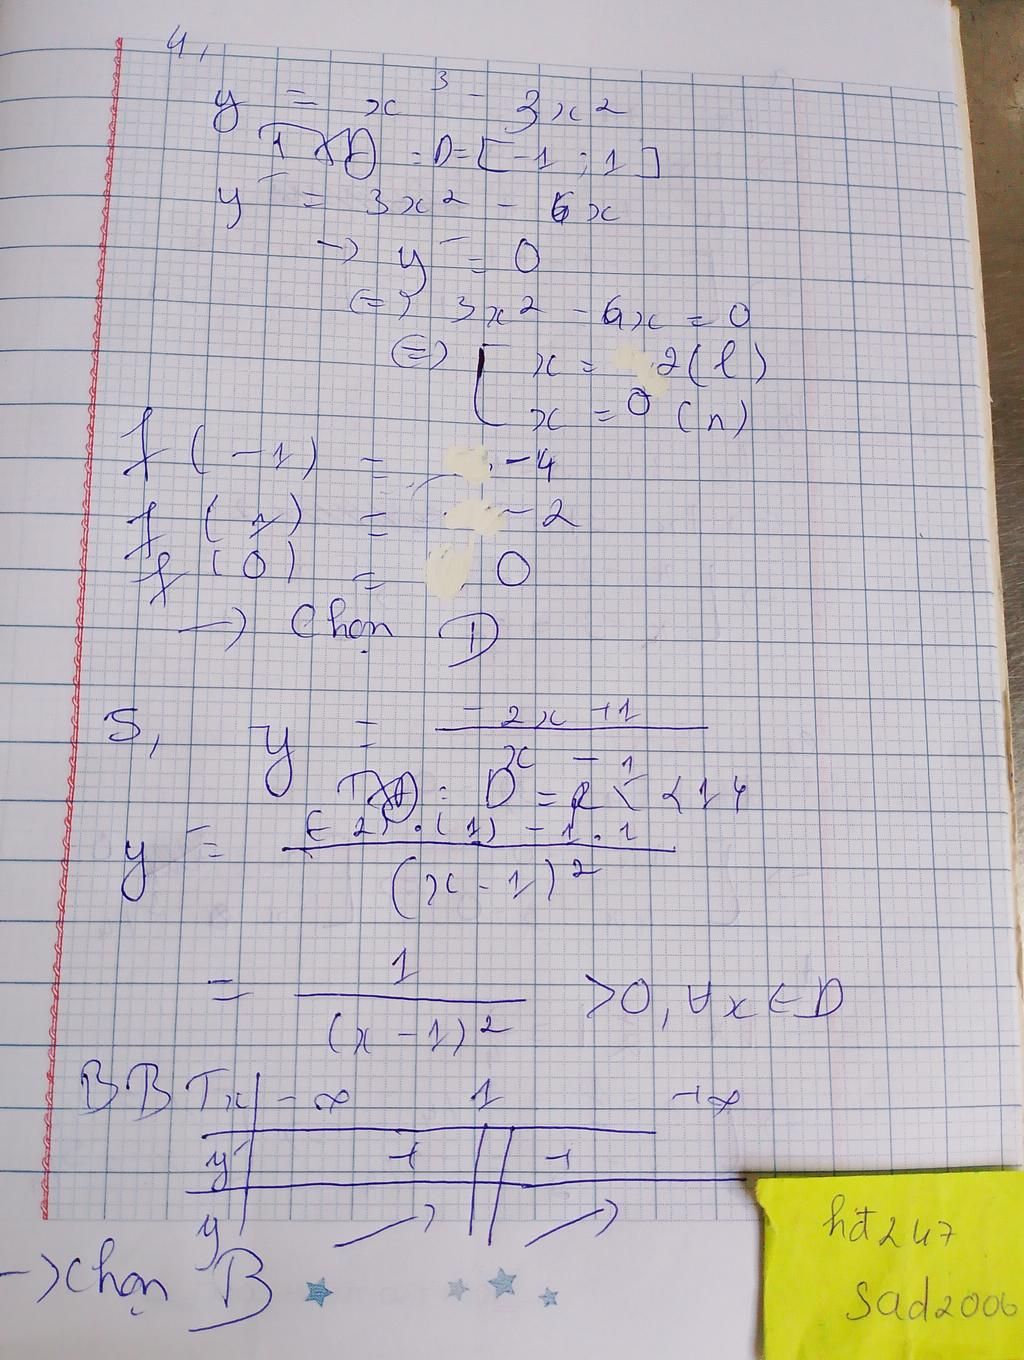 4,
y = x³ - 3x²
TXĐ : D = [-1 ; 1]
y' = 3x² - 6x
→ y' = 0
⇔ 3x² - 6x = 0
⇔ [ x = 2 (l)
x = 0 (n)
f(-1) = -4
f(1) = -2
f(0) = 0
→ Chọn D
5, y = (-2x + 1) / (x - 1)
TXĐ : D = R \ {1}
y' = ((-2).(1) - 1.1) / (x - 1)²
= 1 / (x - 1)² > 0, ∀x ∈ D
BBT x | -∞ 1 +∞
y' | + || +
y | → || →
→ Chọn B
hđ247
Sad2006